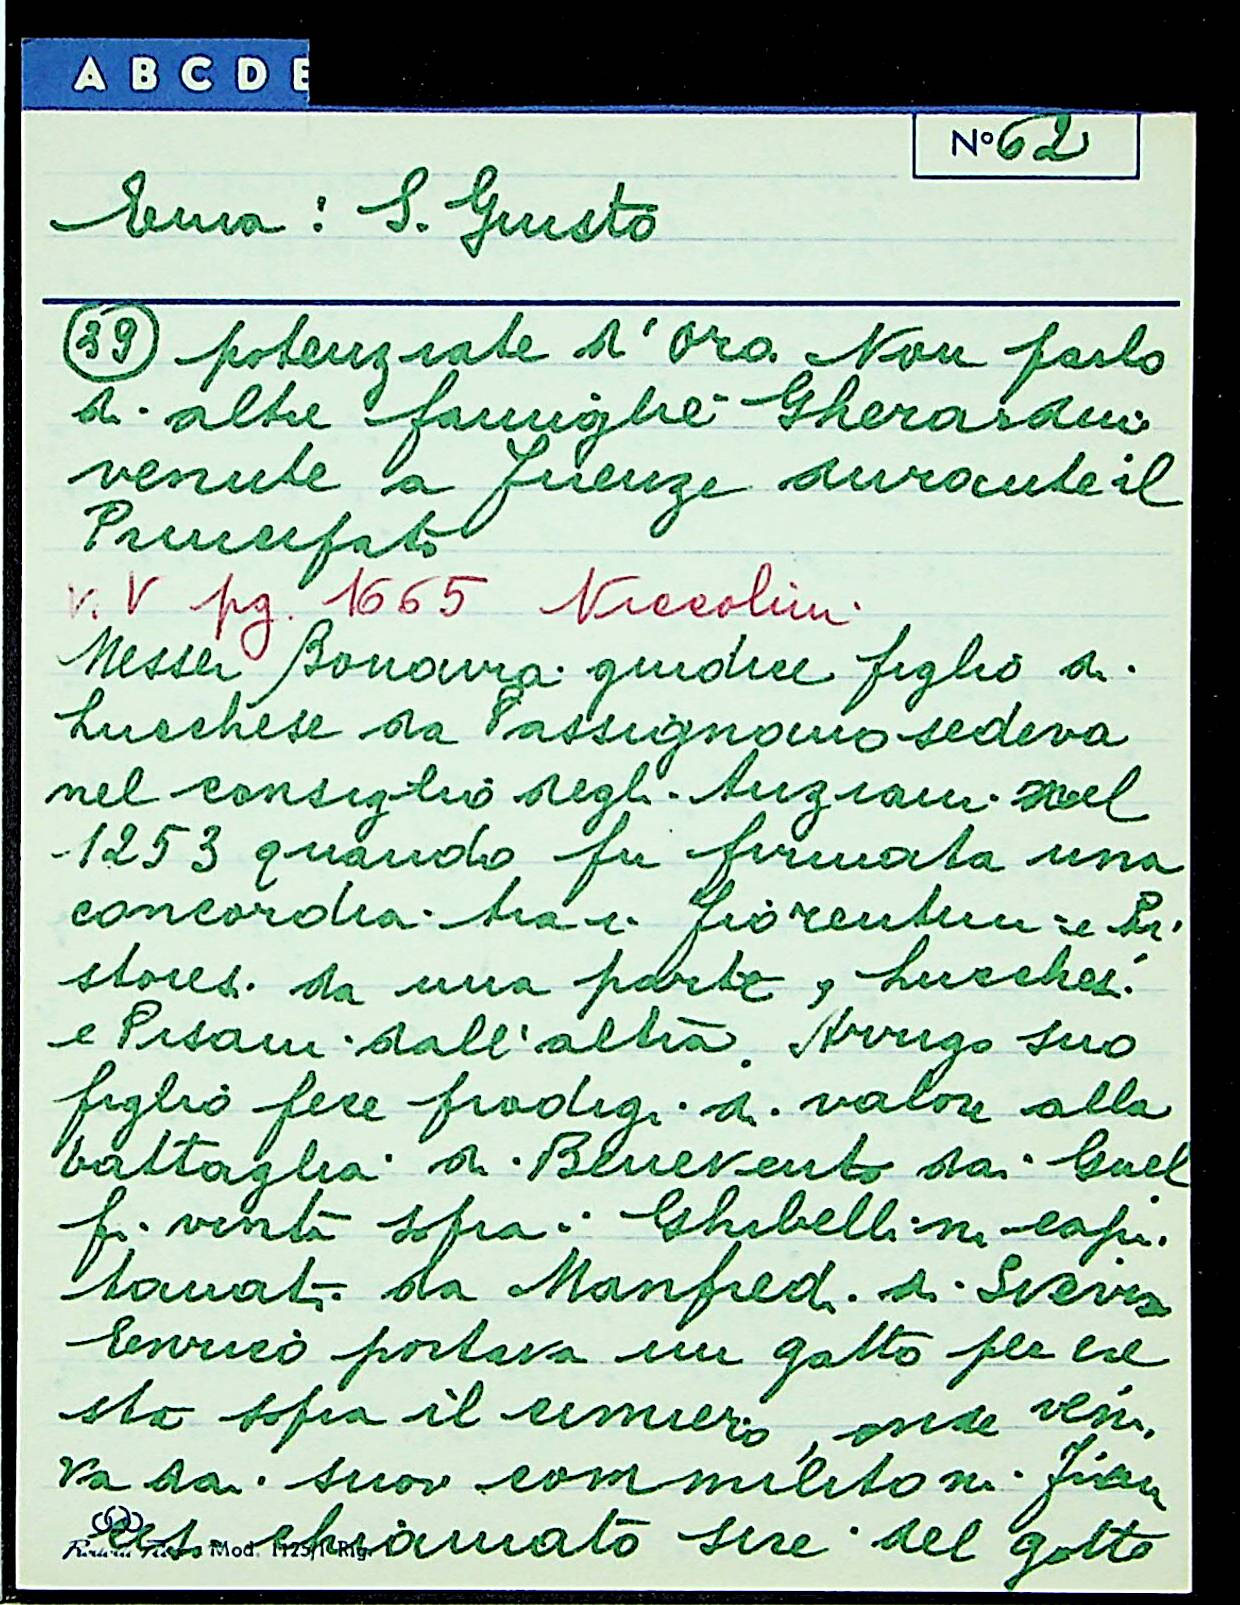 A B C D E
Nº 62
Ema: S. Giusto
39 potenziate d'oro. Non parlo
di altre famiglie Gherardini
venute a Firenze durante il
Principato
V. V pg. 1665 Niccolini
Messer Bonavia giudice figlio di
Lucchese da Passignano sedeva
nel consiglio degli Anziani nel
1253 quando fu firmata una
concordia tra i fiorentini e Pi
stoiesi da una parte, Lucchesi
e Pisani dall'altra. Arrigo suo
figlio fece prodigi di valore alla
battaglia di Benevento dai Guel
fi vinta sopra i Ghibellini capi
tanati da Manfredi di Svevia
Enrico portava un gatto per cre
sta sopra il cimiero, onde veni
va dai suoi commilitoni Fran
cesi chiamato sire del gatto
Mod. 1125/1 Rig.